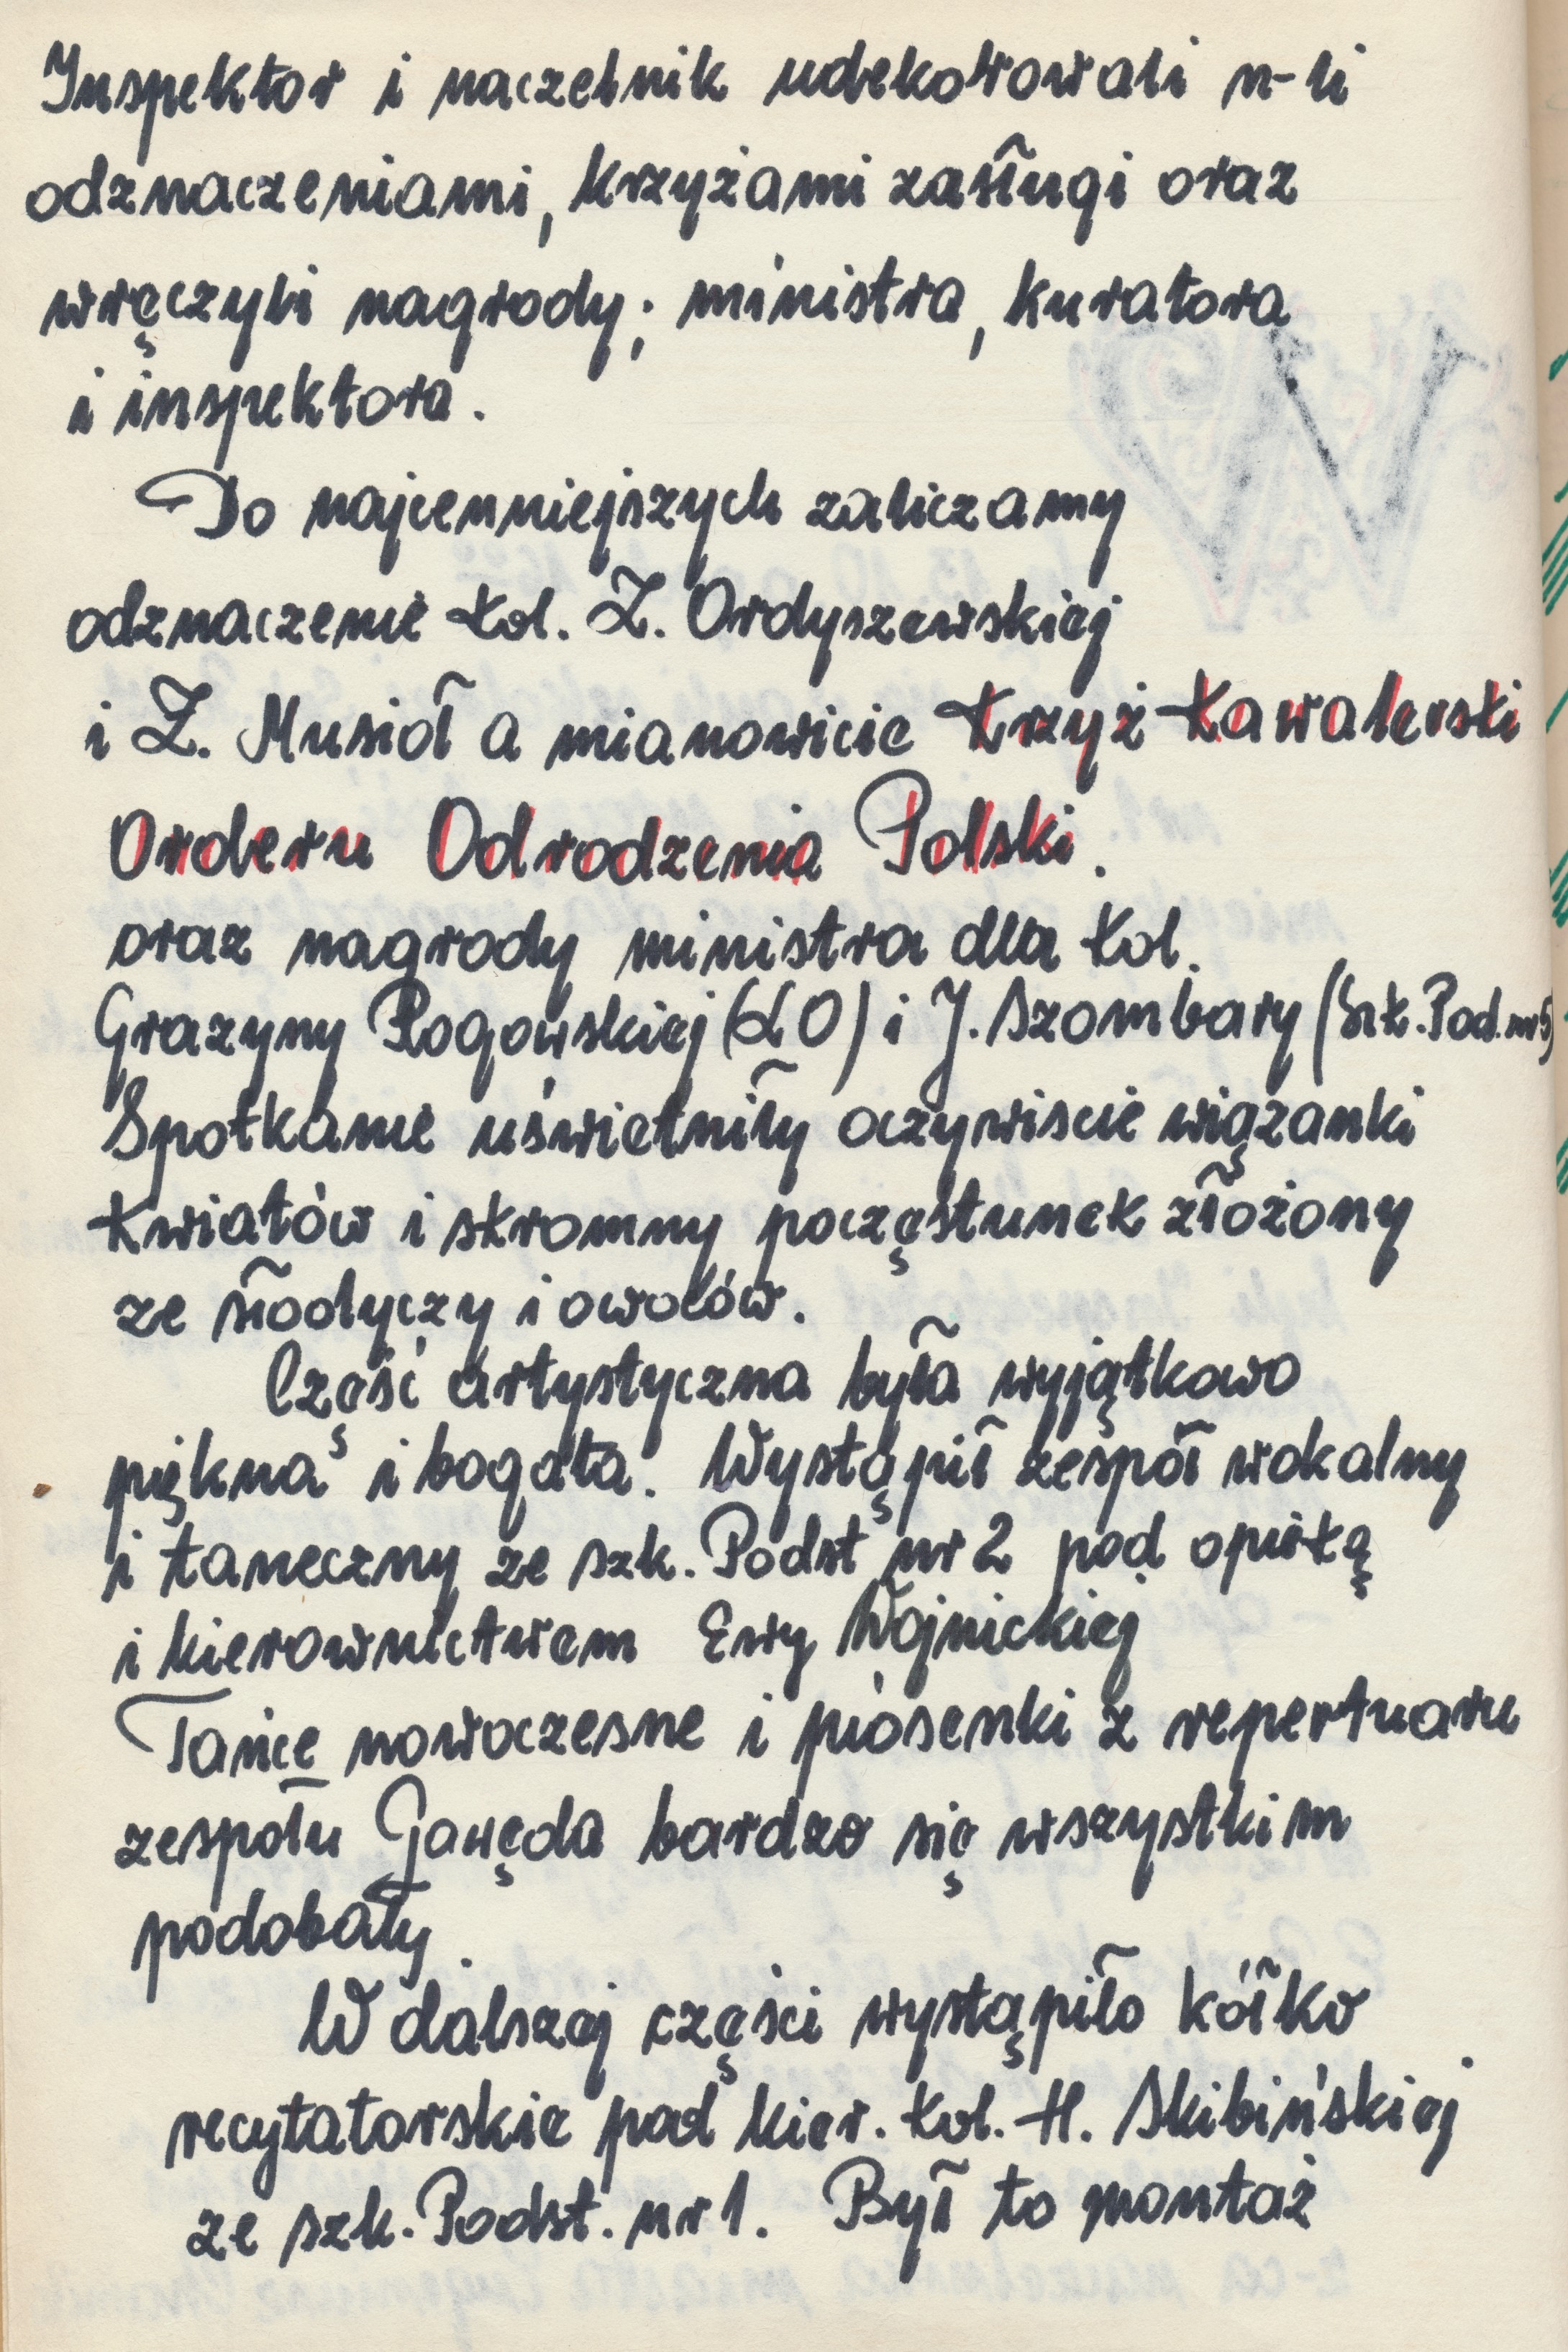 Inspektor i naczelnik udekorowali n-li
odznaczeniami, krzyżami zasługi oraz
wręczyli nagrody; ministra, kuratora
i inspektora.
Do najcenniejszych zaliczamy
odznaczenie kol. Z. Ordyszewskiej
i Z. Musioł a mianowicie Krzyż Kawalerski
Orderu Odrodzenia Polski.
oraz nagrody ministra dla kol.
Grażyny Rogowskiej (LO) i J. Szombary (Szk. Pod. nr 5)
Spotkanie uświetniły oczywiscie wiązanki
kwiatów i skromny poczęstunek złożony
ze słodyczy i owoców.
Część artystyczna była wyjątkowo
piękna i bogata. Wystąpił zespół wokalny
i taneczny ze szk. Podst nr 2 pod opieką
i kierownictwem Ewy Wojnickiej
Tańce nowoczesne i piosenki z repertuaru
zespołu Gawęda bardzo się wszystkim
podobały.
W dalszej części wystąpiło kółko
recytatorskie pod kier. kol. H. Skibińskiej
ze szk. Podst. nr 1. Był to montaż